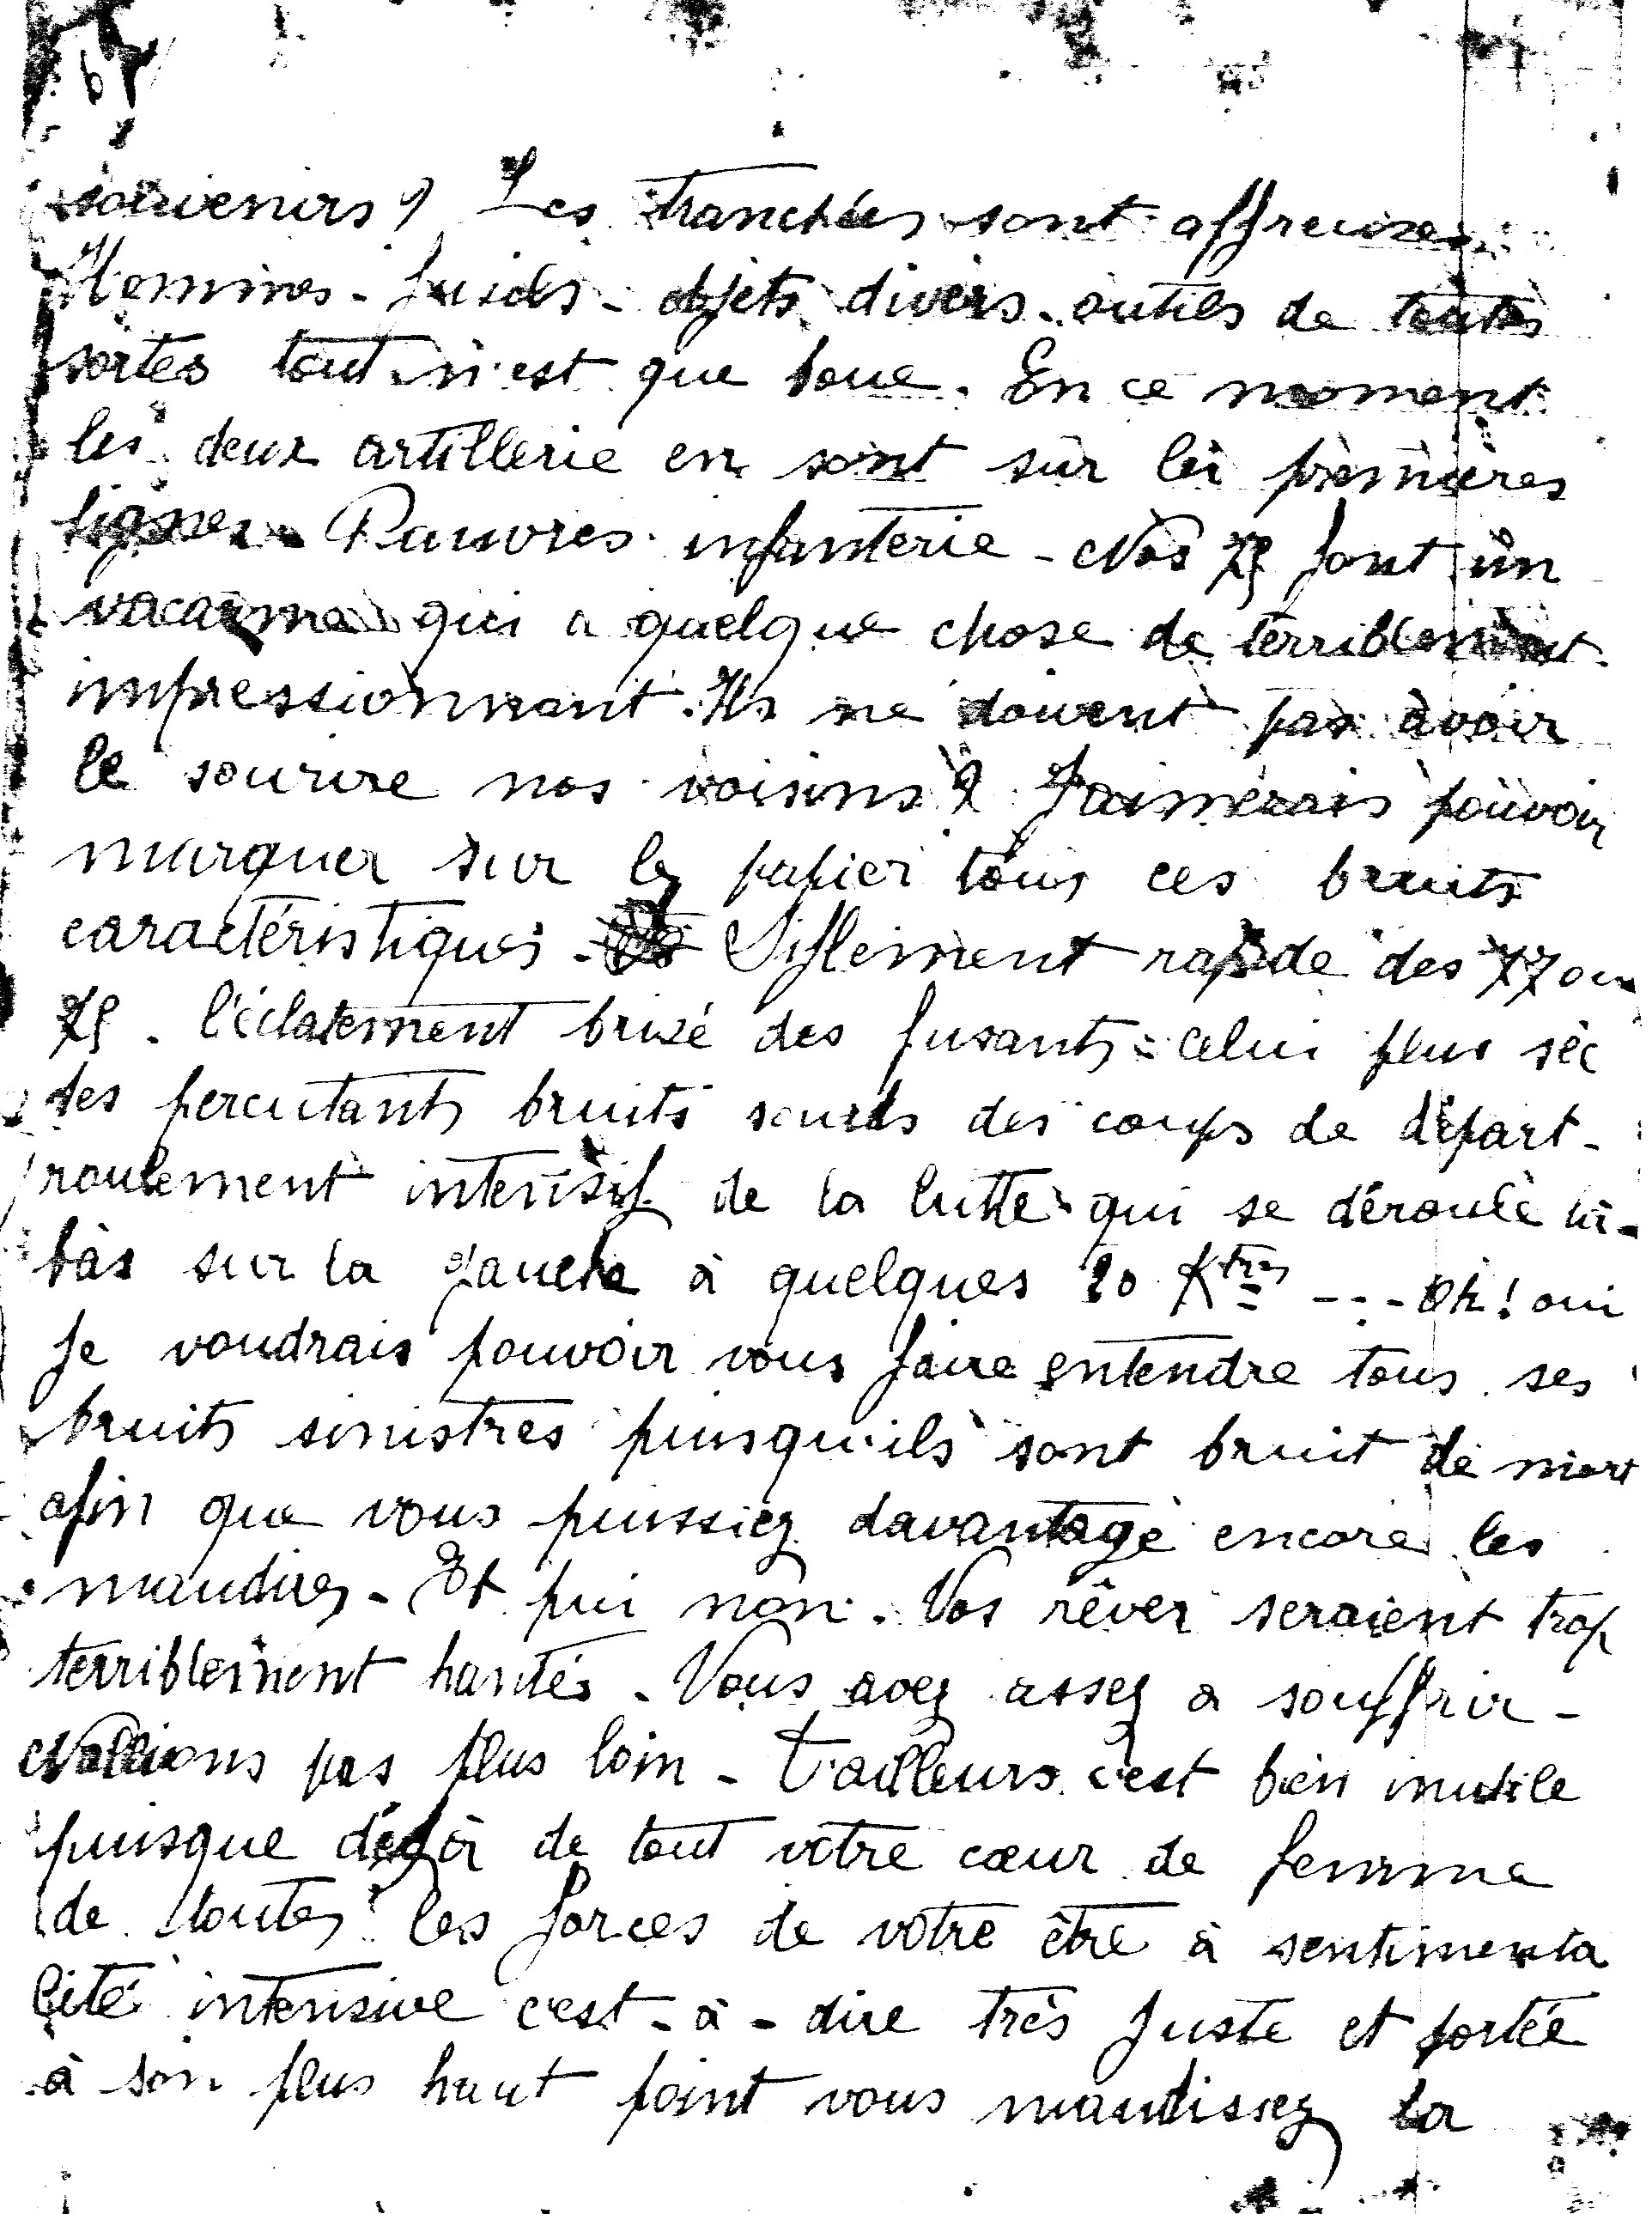 souvenirs ? Les tranchées sont affreuses.
Hommes - fusils - objets divers - outils de toutes
sortes tout n'est que boue. En ce moment
les deux artillerie en sont sur les premières
lignes - Pauvres infanterie - Nos 75 font un
vacarme qui a quelque chose de terriblement
impressionnant. Ils ne doivent pas avoir
le sourire nos voisins ? J'aimerais pouvoir
marquer sur le papier tous ces bruits
caractéristiques - Siflement rapide des 77 ou
75 - l'éclatement brisé des fusants - celui plus sec
des percutants bruits sourds des coups de départ -
roulement intensif de la lutte qui se déroule là-
bas sur la gauche à quelques 20 Ktres --- Oh ! oui
je voudrais pouvoir vous faire entendre tous ses
bruits sinistres puisqu'ils sont bruit de mort
afin que vous puissiez davantage encore les
maudires - Et pui non - Vos rêves seraient trop
terriblement hantés - Vous avez assez a souffrir -
N'allions pas plus loin - D'ailleurs c'est bien inutile
puisque déjà de tout votre cœur de femme
de toutes les forces de votre être à sentimenta
lité intensive c'est - à - dire très juste et portée
à son plus haut point vous maudissez la